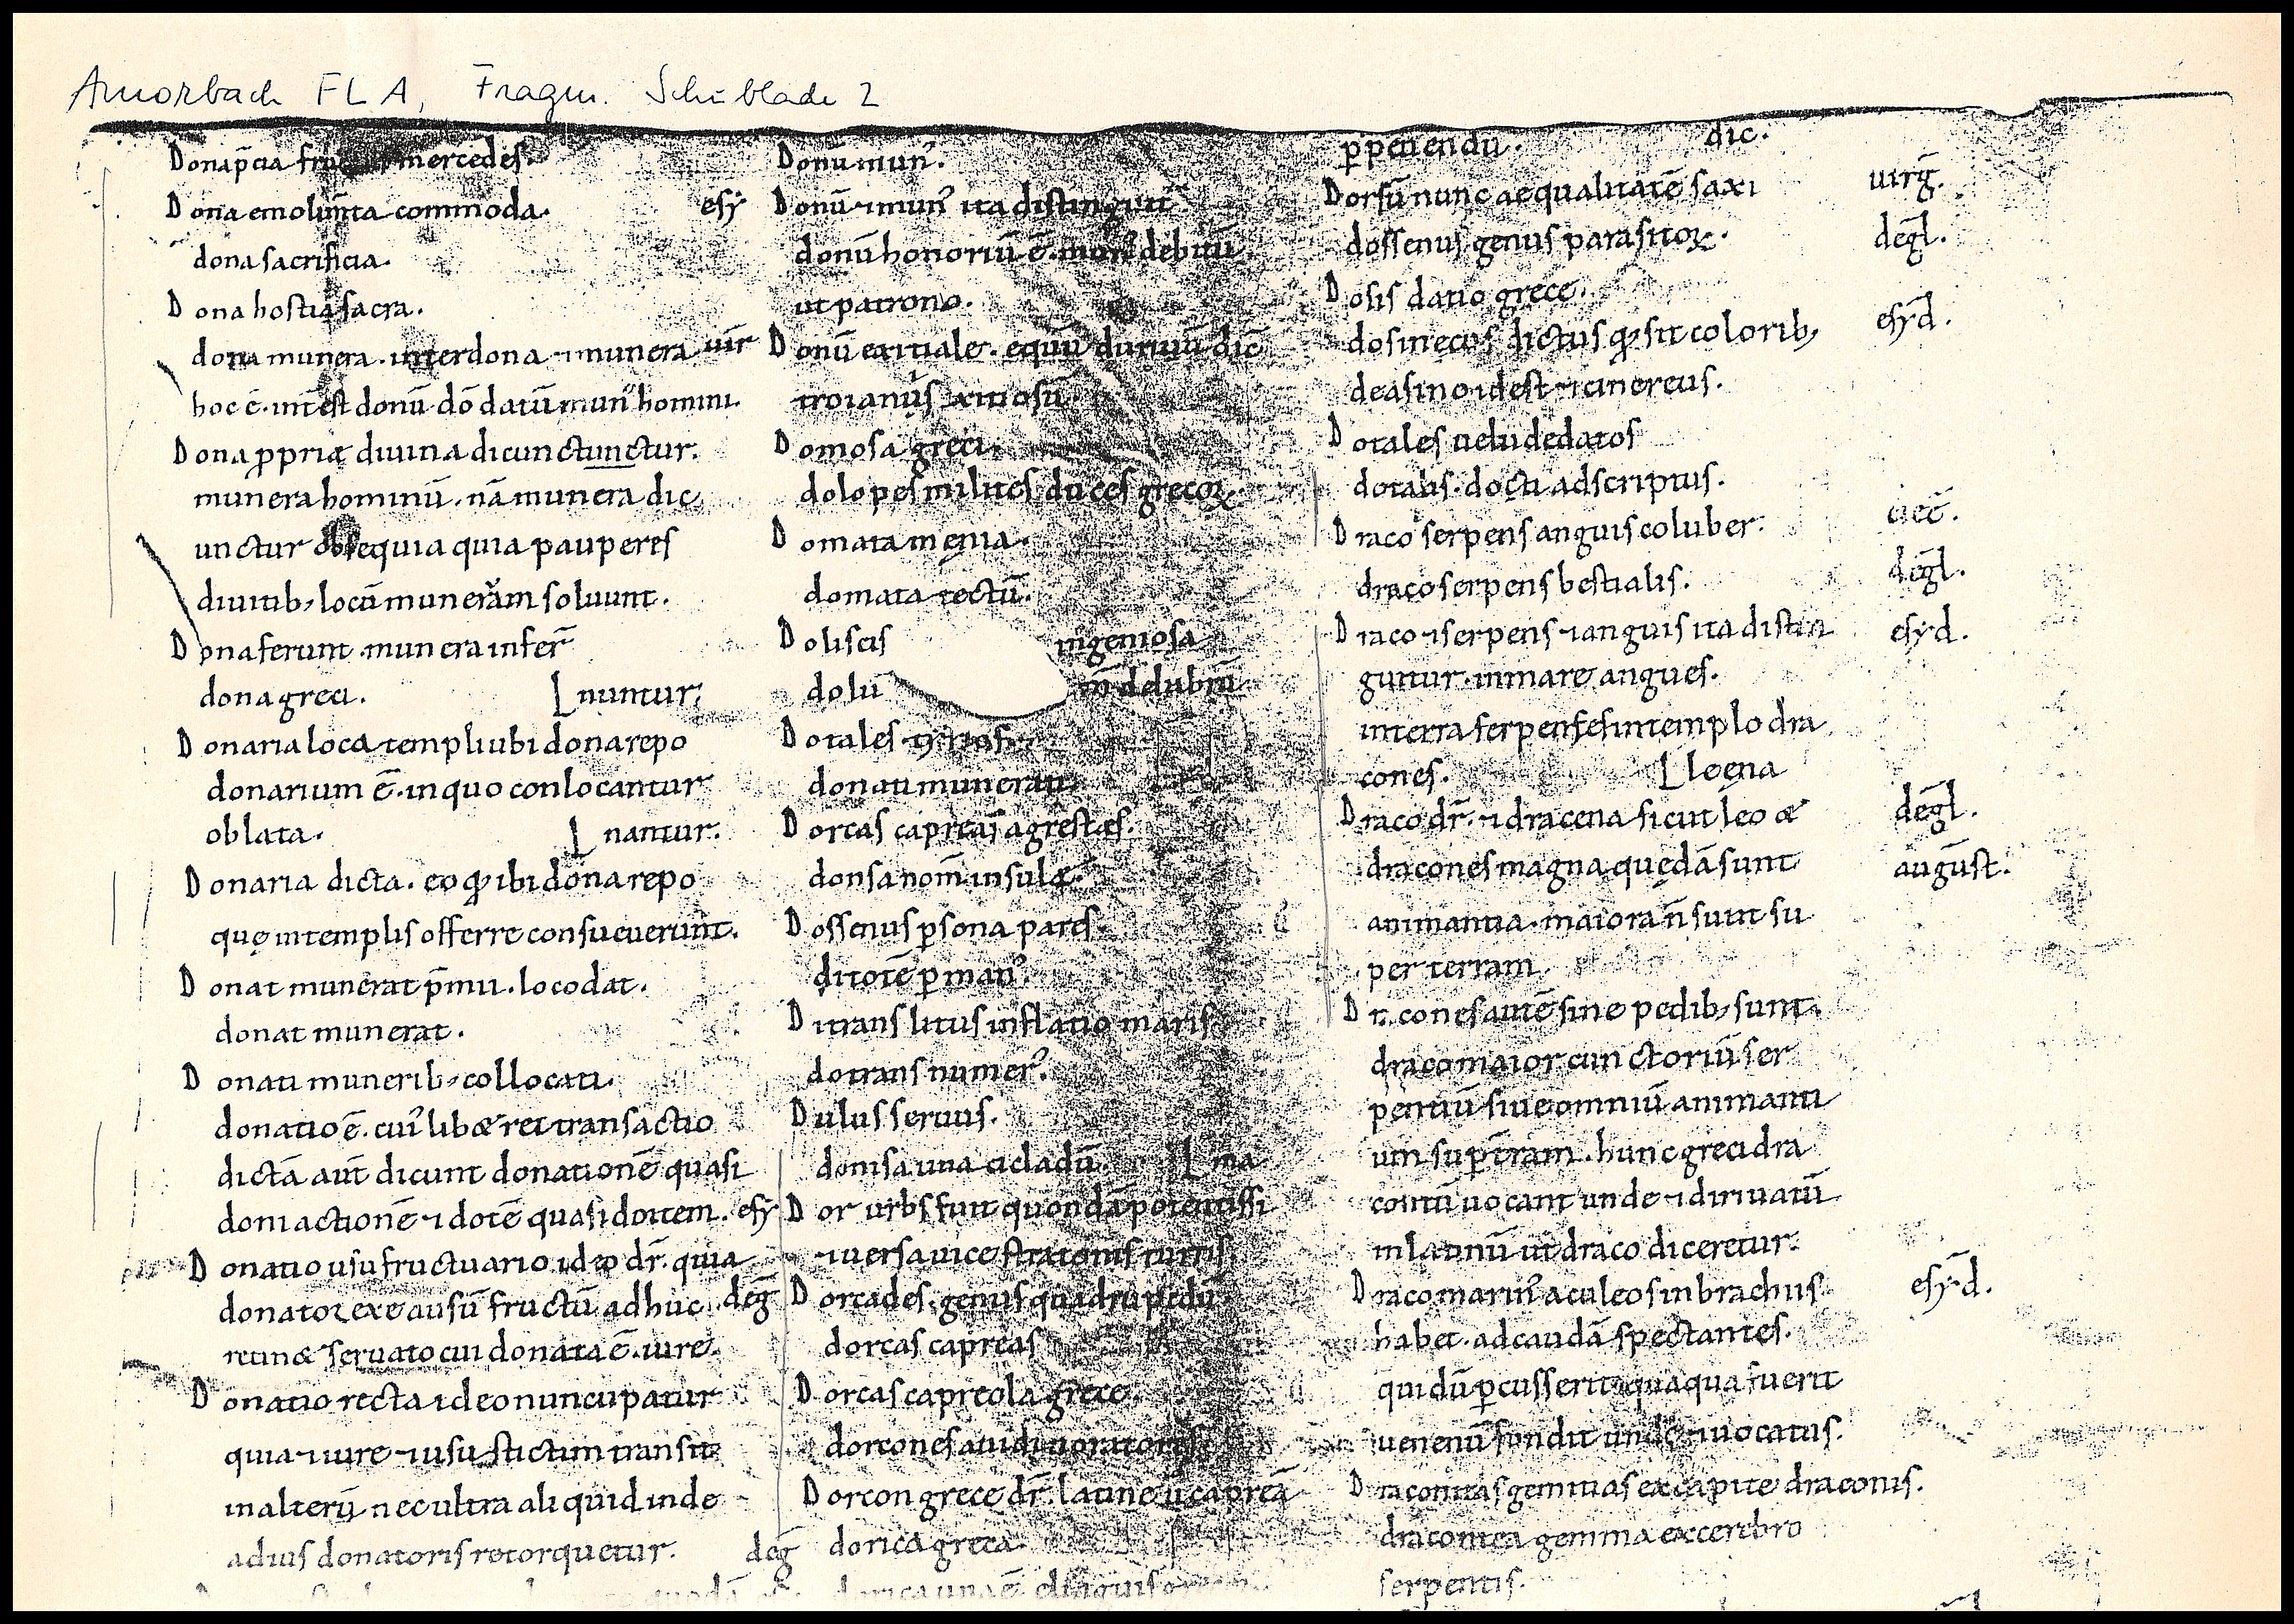 Amorbach FLA, Fragm. Schublade 2
Donap̄cia mercedes.
Dona emolum̄ta commoda.
dona sacrificia.
Dona hostia sacra.
dona munera. interdona ⁊munera uir̄
hoc ē. int̄est donū dō datū mun᾽ homini.
Dona ꝓprię diuina dicunctunctur.
munera hominū. nā munera dic
unctur obsequia quia pauperes
diuitib; locū munerām soluunt.
Dona ferunt. munera infer̄
dona greci. nuntur.
Donaria loca templi ubi dona repo
donarium ē. in quo conlocantur
oblata. nantur.
Donaria dicta. eo qđ ibi dona repo
quę in templis offerre consueuerunt.
Donat munerat p̄mii. loco dat.
donat munerat.
Donati munerib; collocati.
donatio ē. cui᾽ lib& rei transactio
dictā aut̄ dicunt donationē quasi
doni actionē ⁊ dotē quasi do item. esy
Donatio usufructuario ideo dr̄. quia
donator exea usū fructū adhuc deḡ
retin& seruato cui donata ē. iure.
Donatio recta ideo nuncupatur
quia ⁊iure ⁊usu stictim transit
inalterū. nec ultra aliquid inde
adius donatoris retorquetur. deḡ
esy Donū mun᾽.
Donū ⁊mun᾽ ita distingun̄t
donū honoriū ē. mun᾽ debitū
ut patrono.
Donū exitiale. equū duriuū dic̄
troianūs exitiosū
Domosa greci.
dolopes milites duces grecoꝝ.
Domata męnia.
domata tectū.
Doliscis ingeniosa
dolu delubrū
Dotales
donati munerati
Dorcas capreas agrestes.
donsa nom̄ insulę.
Dossenus ꝑsona pares
ditotē ꝑ man᾽.
Ditrans litus inflatio maris.
dotrans numer᾽.
Dulus seruus.
donisa una cicladū. ma
Dor urbs fuit quondā potentissi
⁊uersa uice stratonis turris.
Dorcades. genus quadrupedū
dorcas capreas
Dorcas capreola grece.
dorcones auidi uoratores
Dorcon grece dr̄. latine ū capreā
dorica greca
ꝑpetiendū. dic.
Dorsū nunc aequalitatē saxi uirḡ.
dossenus genus parasitoꝝ. deḡl.
Dosis datio grece.
dosin ecus dictus qđ sit colorib; esyd̄.
de asino idest ⁊cinereus.
Dotales uelud edatos
dotalis. docti adscriptus.
Draco serpens anguis coluber.
draco serpens bestialis. deḡl.
Draco ⁊serpens ⁊anguis ita distin esyd.
guntur. in mare angues.
in terra serpenses in templo dra
cones. leęna
Draco dr̄. ⁊dracena sicut leo & deḡl.
dracones magna quędā sunt auḡust.
animantia. maiora n̄ sunt su
per terram
Dracones autē sine pedib; sunt.
draco maior cunctoriū ser
pentiū siue omniū animanti
um sup t̄ram. hunc greci dra
contū uocant unde ⁊diriuatū
in latinū ut draco diceretur.
Draco marin᾽ aculeos in brachiis esyd̄.
habet. ad caudā spectantes.
qui dū ꝑcusserit quaqua fuerit
uenenū fundit unde ⁊uocatus.
Dracontias gemmas ex capite draconis.
dracontea gemma excerebro
serpentis.